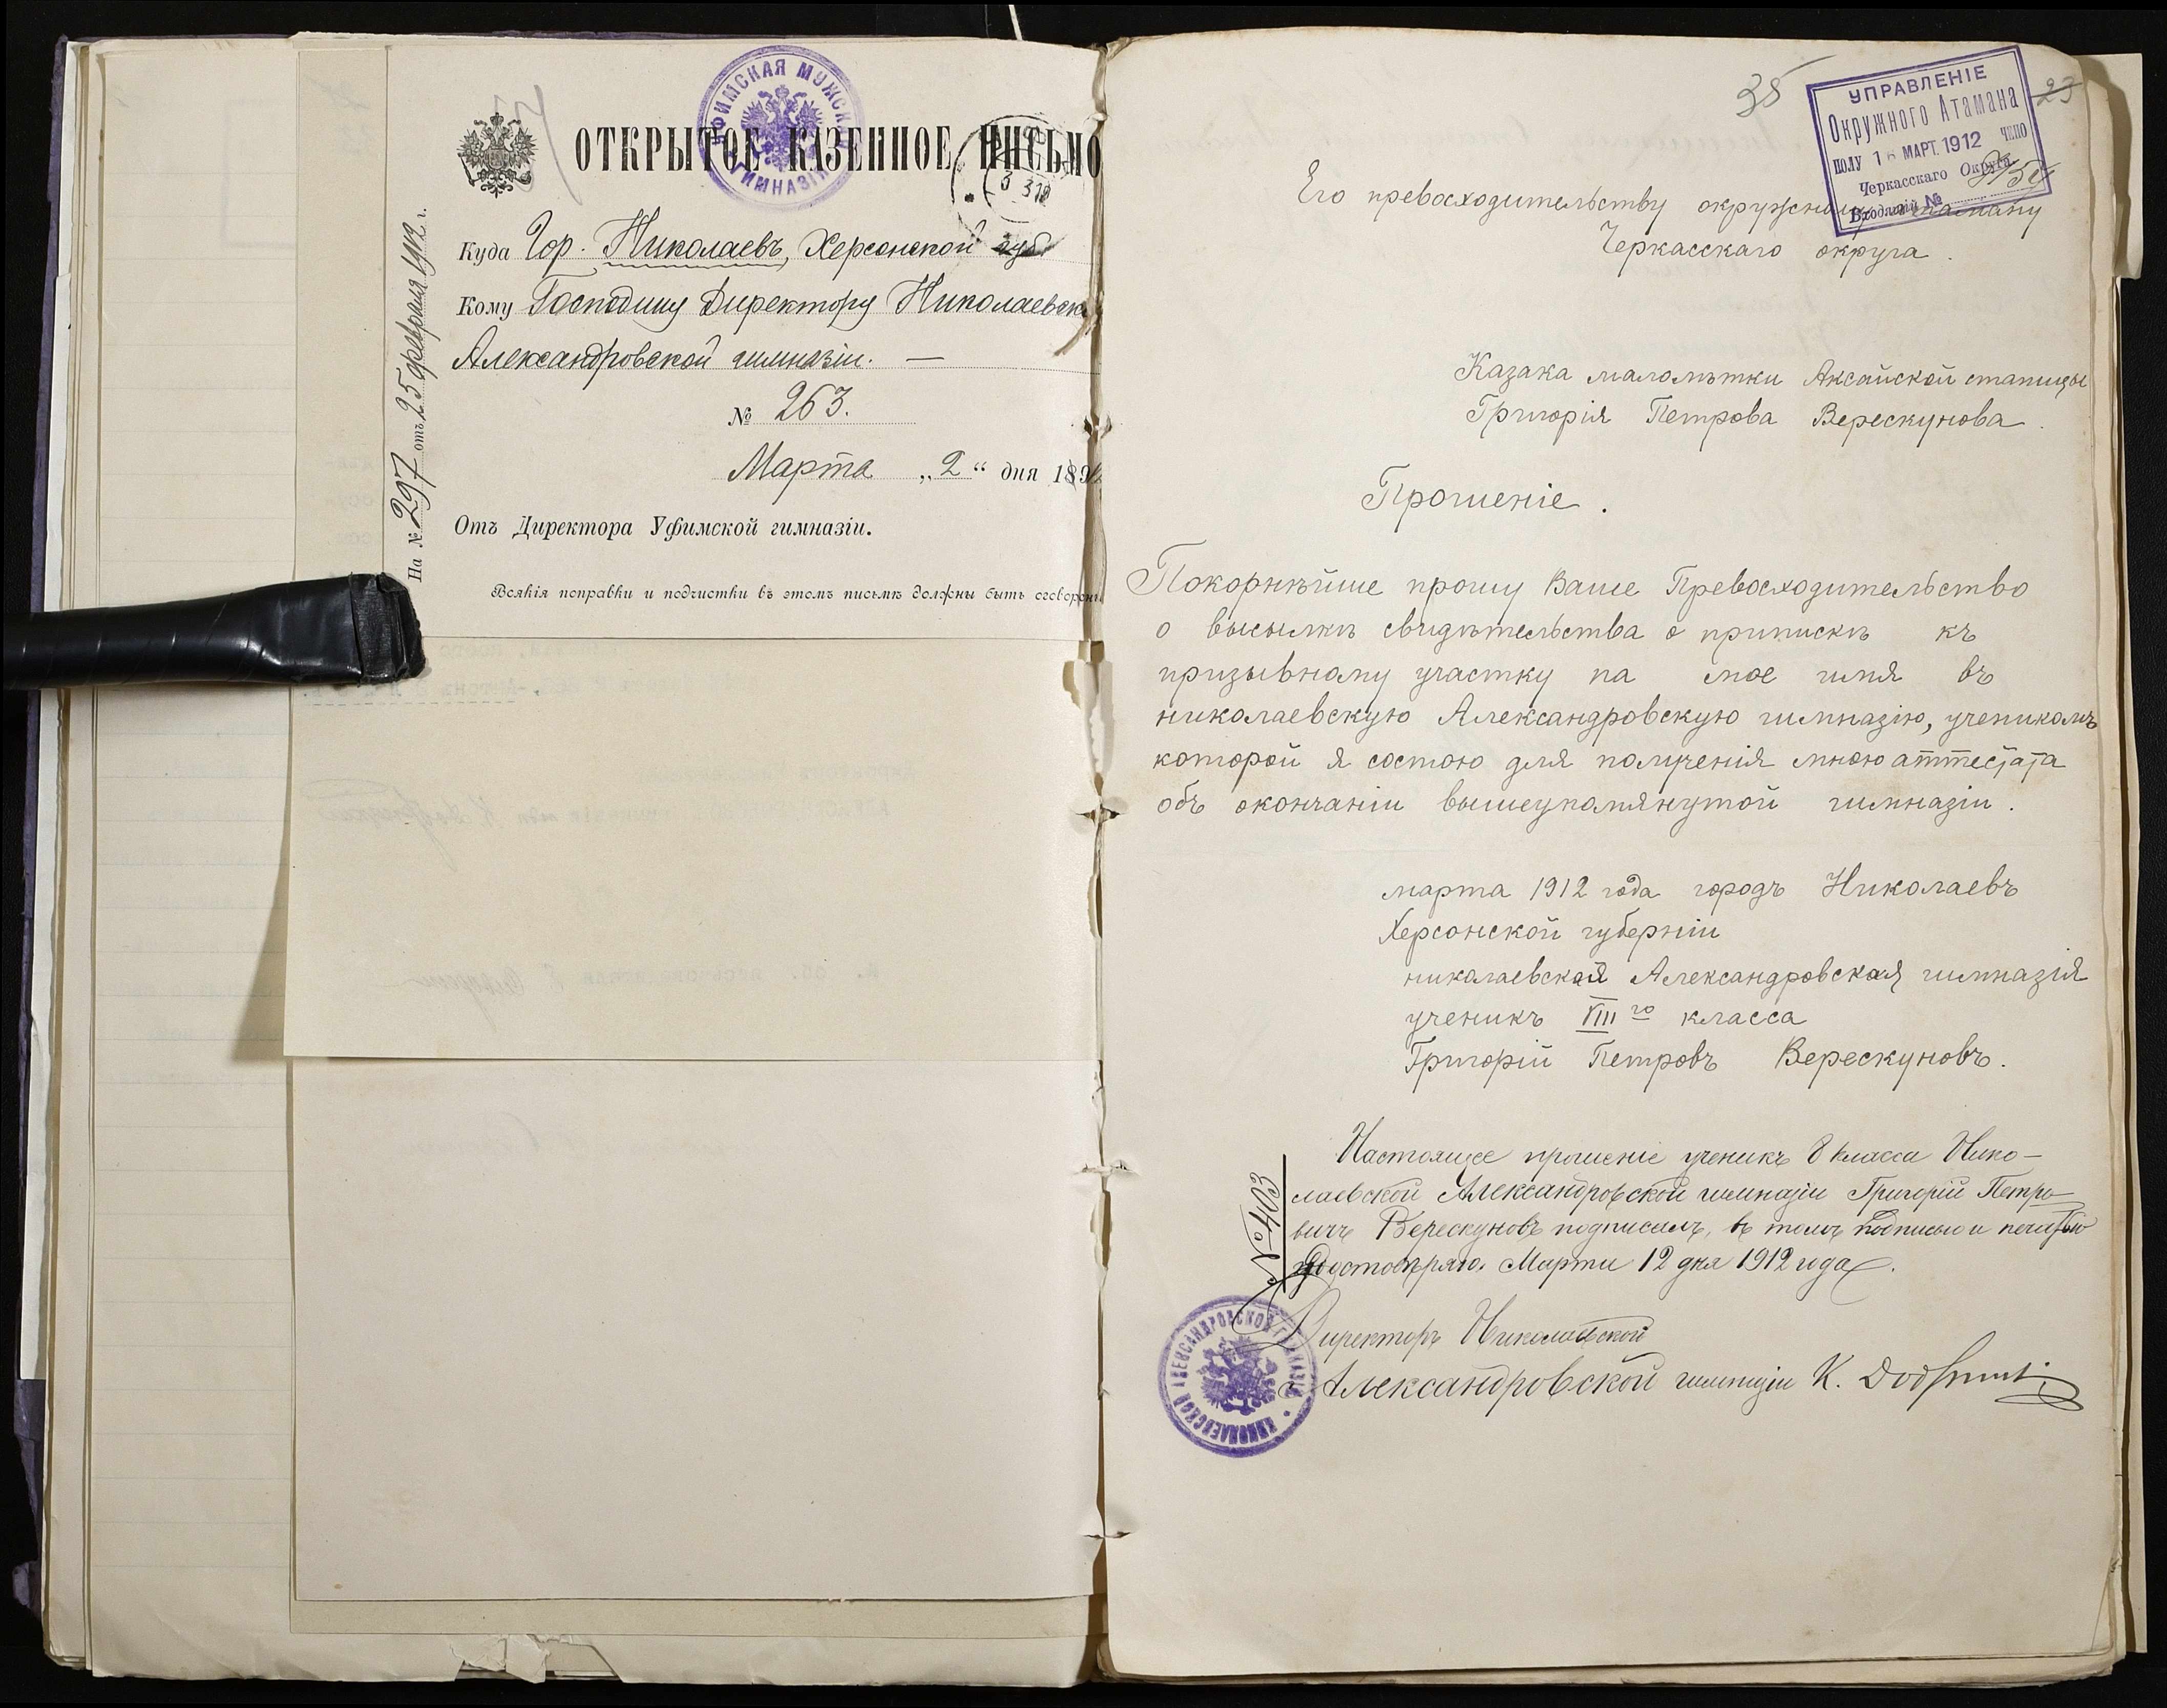 УФИМСКАЯ МУЖСКАЯ ГИМНАЗІЯ
ОТКРЫТОЕ КАЗЕННОЕ ПИСЬМО
Куда Гор. Николаевъ, Херсонской губ.
Кому Господину Директору Николаевск
Александровской гимназіи. —
№ 263.
Марта „2“ дня
Отъ Директора Уфимской гимназіи.
Всякія поправки и подчистки въ этомъ письмѣ должны быть оговорены
На № 297 отъ 25 февраля 1912 г.
35
23
УПРАВЛЕНІЕ
Окружного Атамана
ПОЛУ 16 МАРТ. 1912 ЧЕНО
Черкасскаго Округа
Входящій №
Его превосходительству окружному атаману
Черкасскаго округа.
Казака малолѣтки Аксайской станицы
Григорія Петрова Верескунова.
Прошеніе.
Покорнѣйше прошу Ваше Превосходительство
о высылкѣ свидѣтельства о припискѣ къ
призывному участку на мое имя въ
николаевскую Александровскую гимназію, ученикомъ
которой я состою для полученія мною аттестата
объ окончаніи вышеупомянутой гимназіи.
марта 1912 года городъ Николаевъ
Херсонской губерніи
николаевская Александровская гимназія
ученикъ VIII го класса
Григорій Петровъ Верескуновъ.
Настоящее прошеніе ученикъ 8 класса Нико-
лаевской Александровской гимназіи Григорій Петро-
вичъ Верескуновъ подписалъ, въ томъ подписью и печатью
удостовѣряю. Марта 12 дня 1912 года.
№ 403
Директоръ Николаевской
Александровской гимназіи К.
НИКОЛАЕВСКОЙ АЛЕКСАНДРОВСКОЙ ГИМНАЗІИ